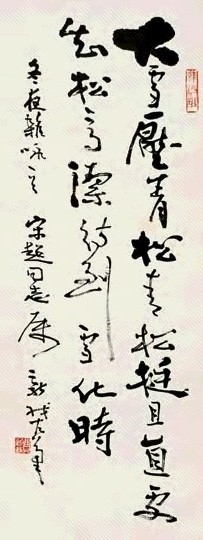 大雪壓青松青松挺且直要
知松高潔待到雪化時
冬夜雜咏之一
宋超同志屬